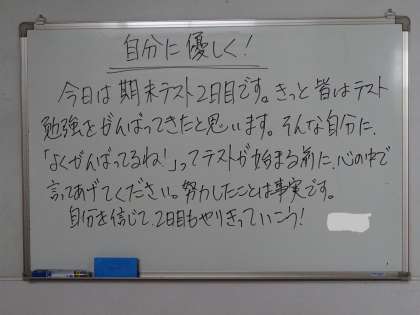 自分に優しく!
今日は期末テスト2日目です。きっと皆はテスト
勉強をがんばってきたと思います。そんな自分に、
「よくがんばってるね!」ってテストが始まる前に、心の中で
言ってあげてください。努力したことは事実です。
自分を信じて、2日目もやりきっていこう!